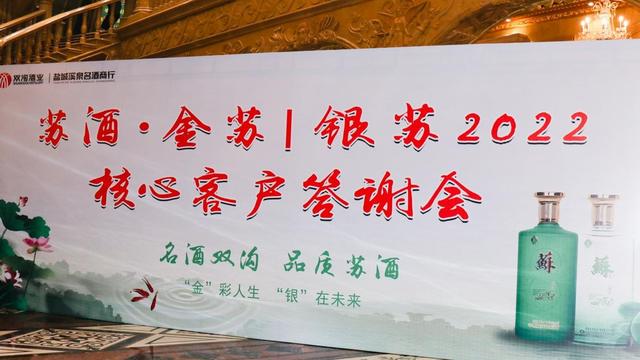 双沟酒业 | 盐城溪泉名酒商行
苏酒·金苏|银苏2022
核心客户答谢会
名酒双沟 品质苏酒
“金”彩人生 “银”在未来
蘇
蘇